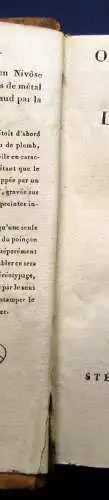 en Nivôse
s de métal
aud par la
étoit d'abord
u de plomb,
elle en carac-
étant que le
appée par un
, gravée sur
preintes in-
qu'une seule
du poinçon
séparément
bler en sera
éréotypage,
par le sens
estamper le
er.
O
L
STÉ